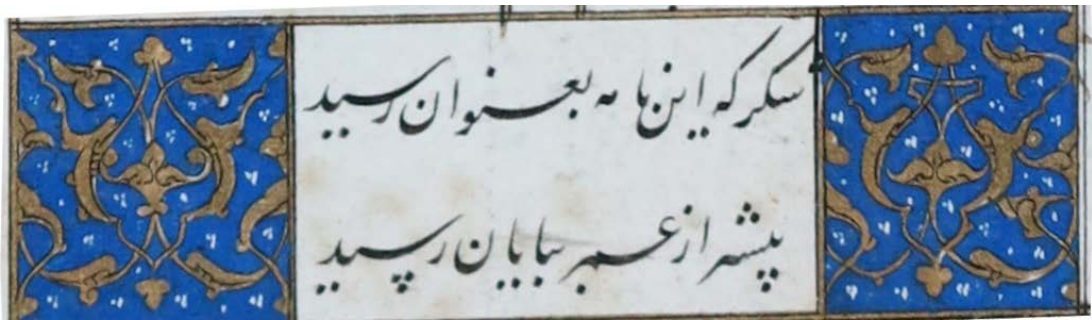 شکر که این نامه بعنوان رسید
پیشتر از عمر بپایان رسید